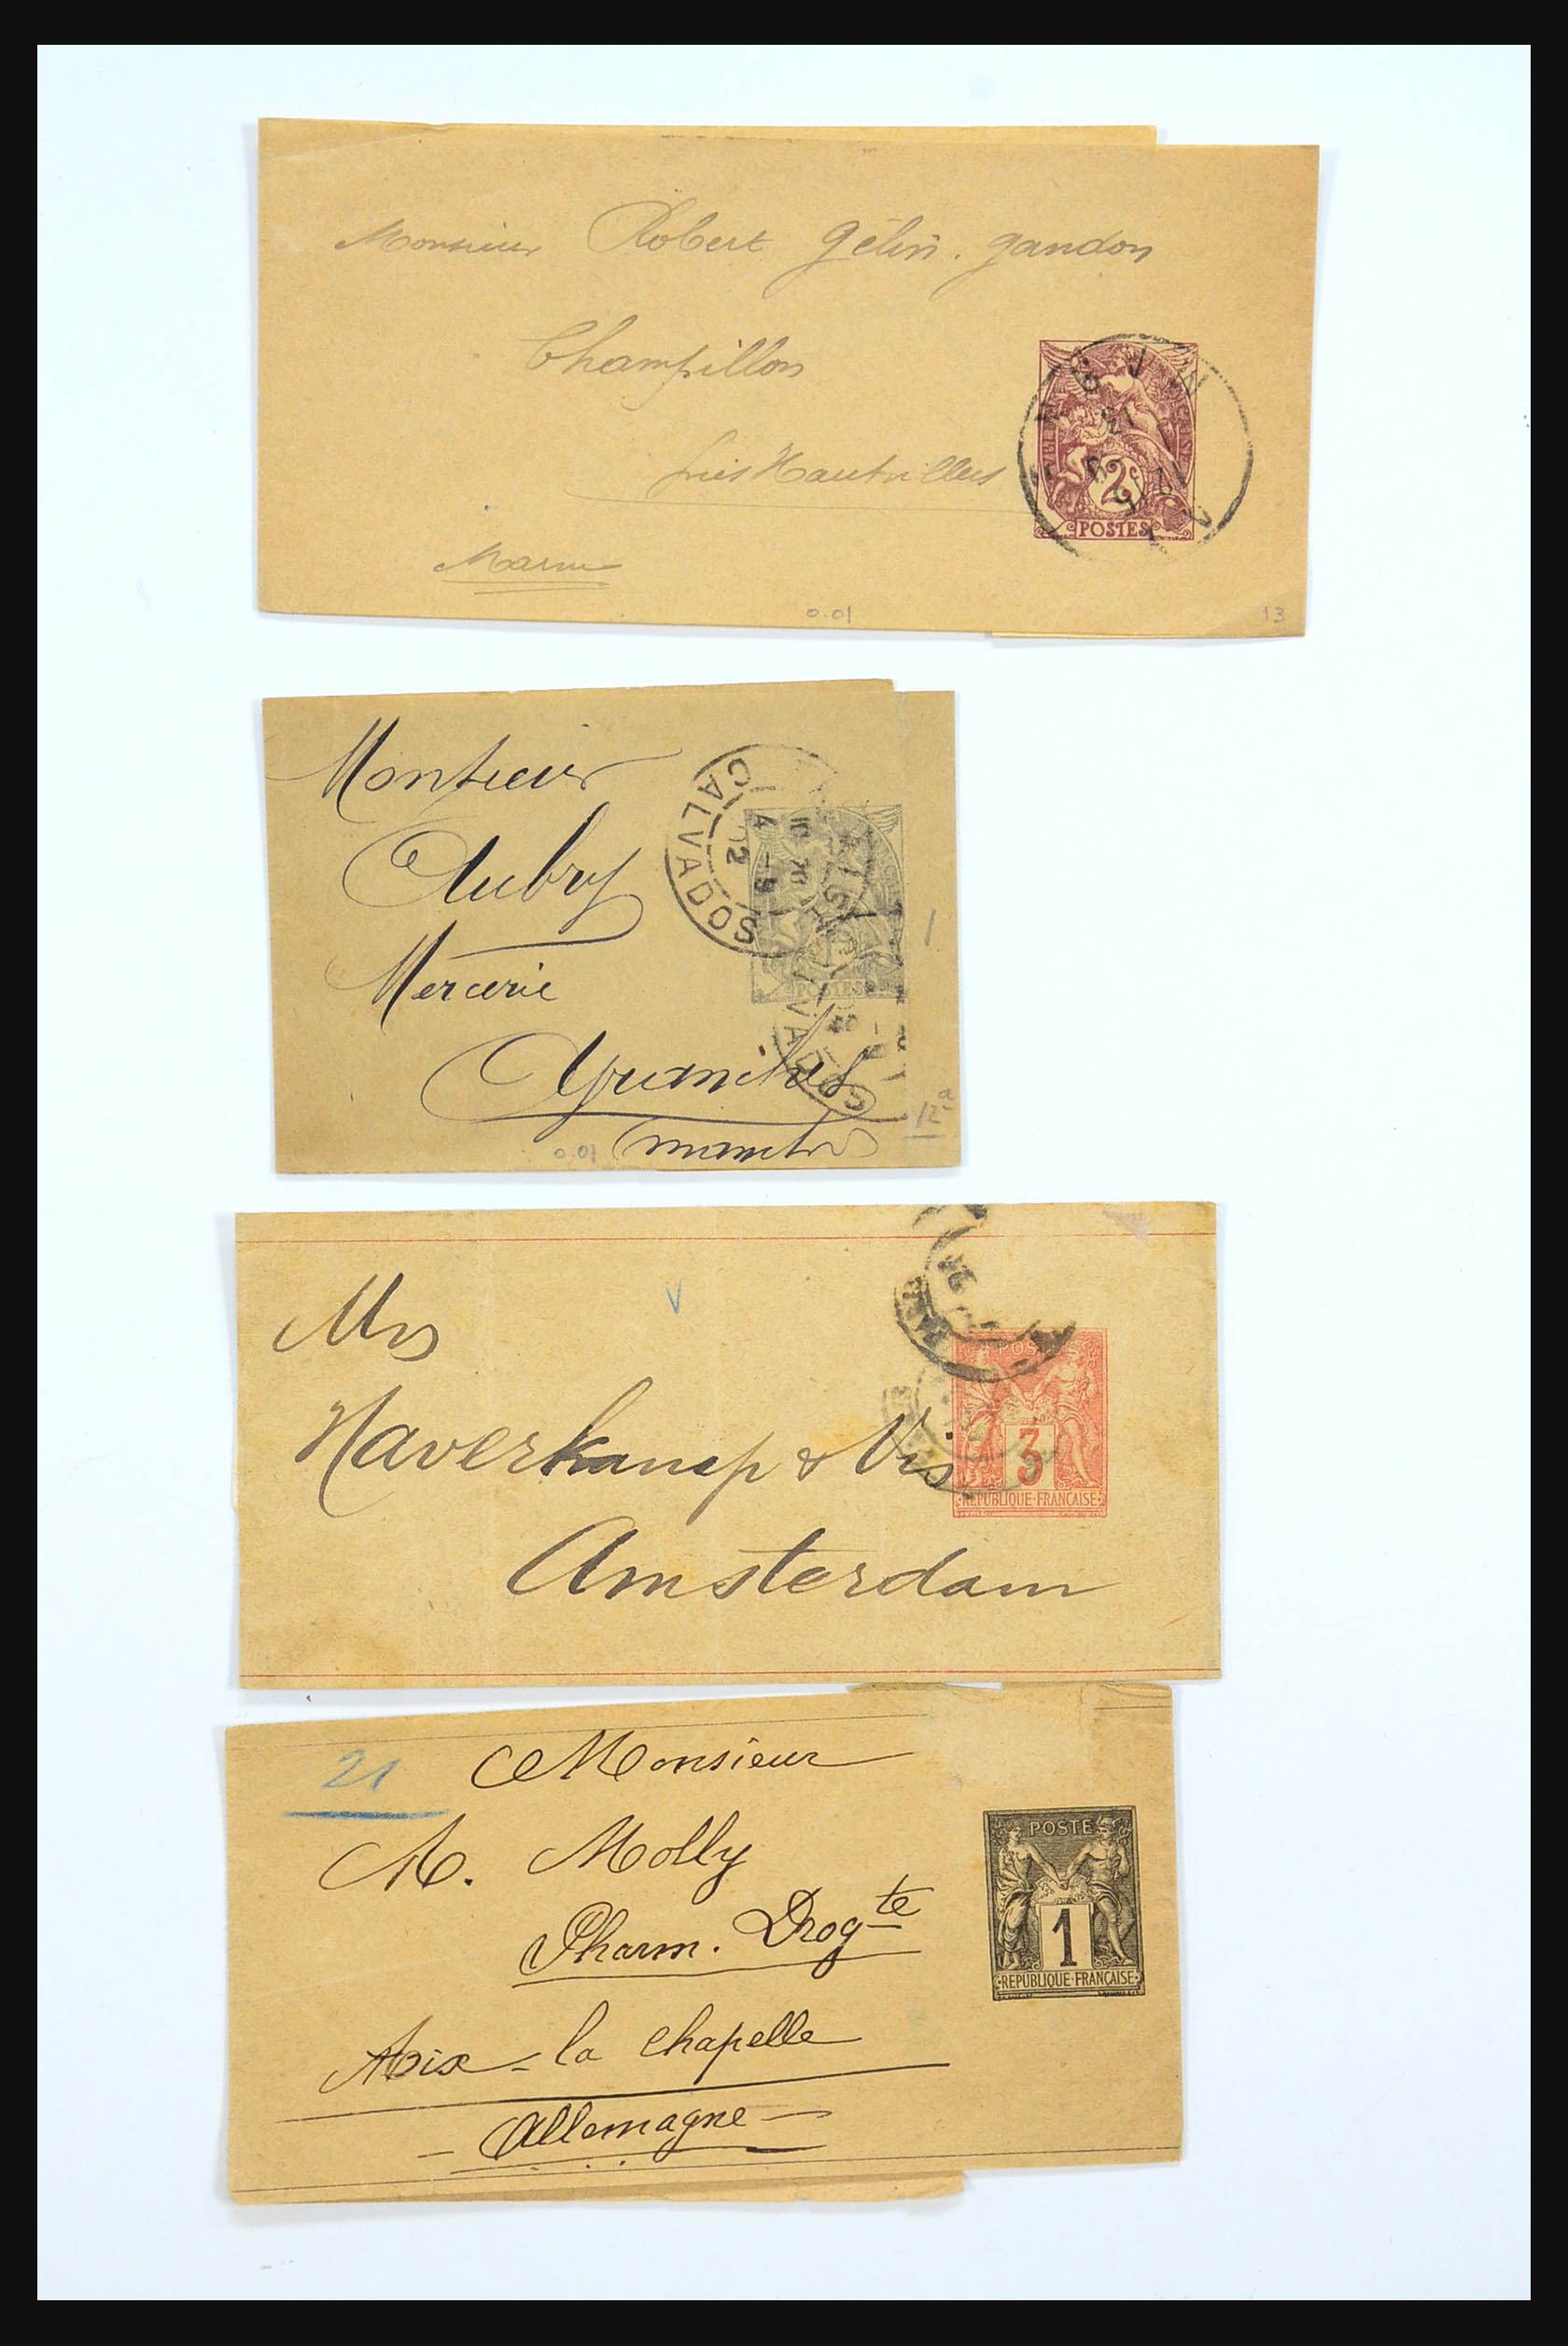 Monsieur Robert Gélin. Gandon
Champillon
près Hautvillers
Marne
2
POSTES
0.01
13
Monsieur
Aubry
Mercerie
CALVADOS
POSTES
1
12a
0.01
V
Mrs
Haverkamp & Vis
Amsterdam
POSTES
3
REPUBLIQUE·FRANÇAISE
21
Monsieur
A. Molly
Pharm. Drogte
Aix-la chapelle
Allemagne
POSTES
1
REPUBLIQUE·FRANÇAISE